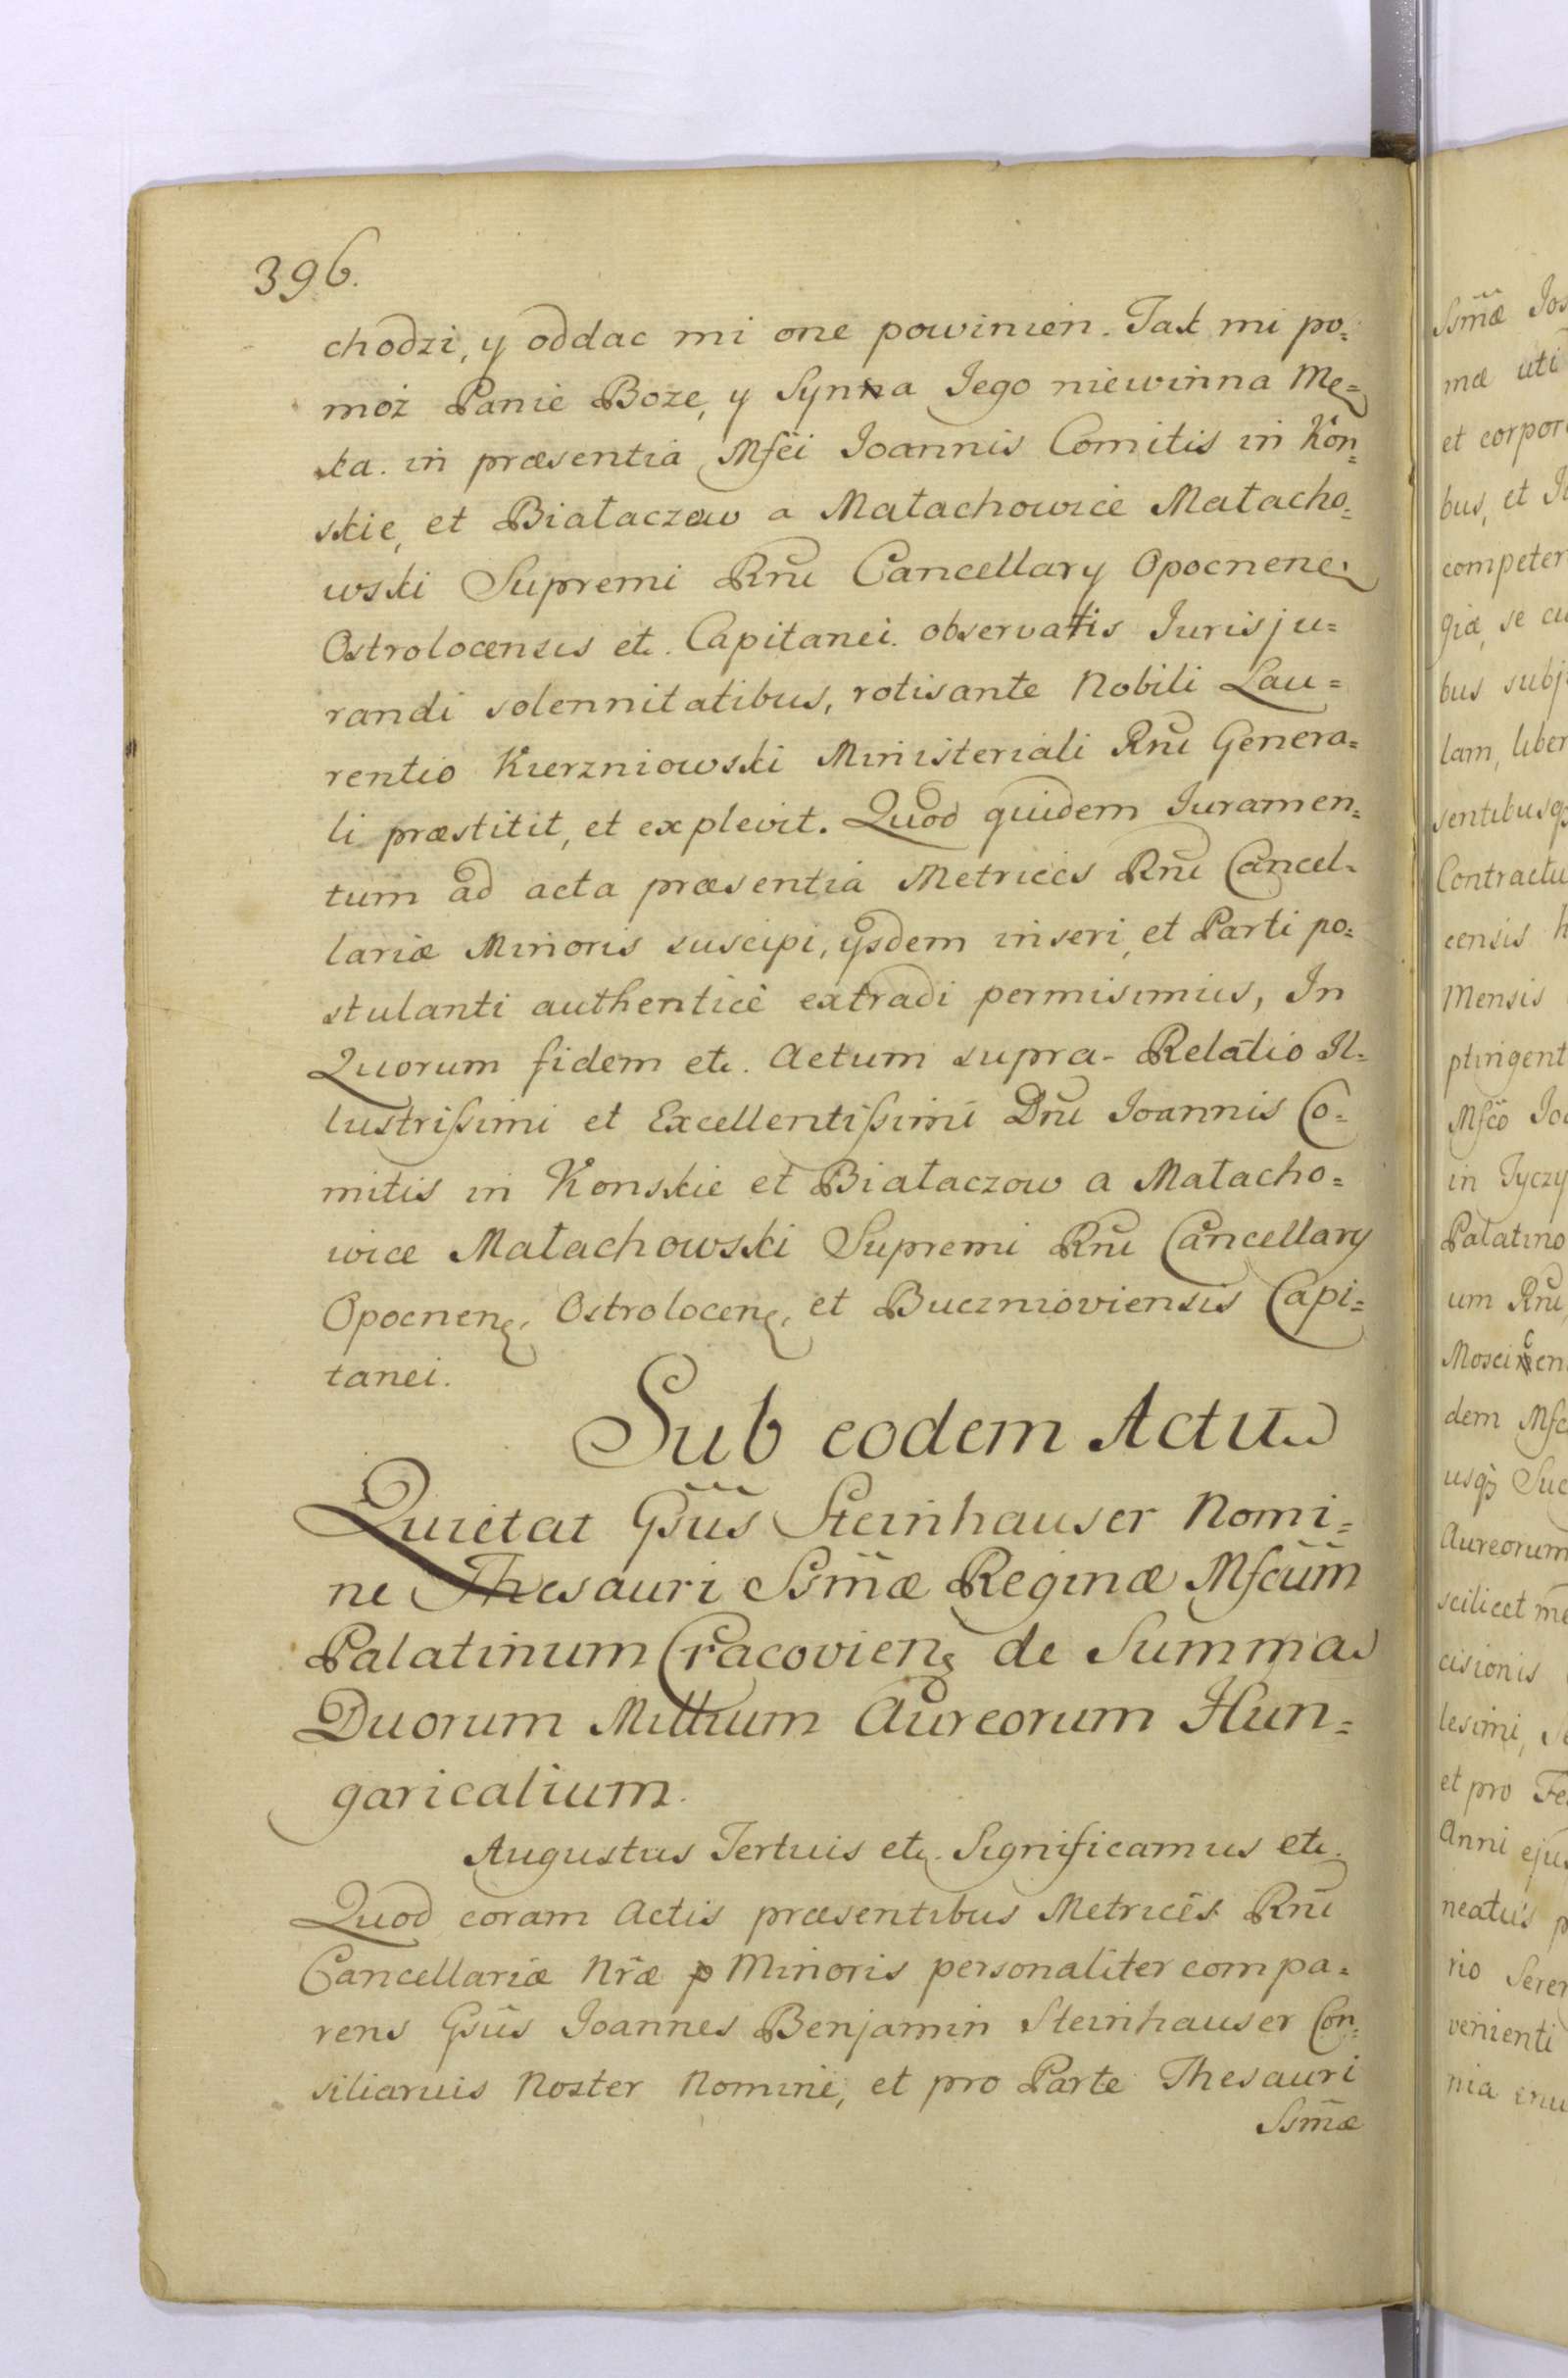 396.
chodzi, y oddac mi one powinien. Tak mi po=
moż Panie Boze, y Synna Jego niewinna Mę=
ka. in præsentia Mfci Joannis Comitis in Kon=
skie, et Białaczow a Małachowice Małacho=
wski Supremi Rni Cancellary Opocnen
Ostrolocensis etc. Capitanei. observatis Jurisju=
randi solennitatibus, rotisante Nobili Lau=
rentio Kierzniowski Ministeriali Rni Genera=
li præstitit, et explevit. Quod quidem Juramen=
tum ad acta præsentia Metrices Rni Cancel=
lariæ Minoris suscipi, ijsdem inseri, et Parti po=
stulanti authenticè extradi permisimus, In
Quorum fidem etc. Actum supra - Relatio Il=
lustrissimi et Excellentissimi Dni Joannis Co=
mitis in Konskie et Białaczow a Małacho=
wice Małachowski Supremi Rni Cancellary
Opocnen, Ostrolocen, et Bucznioviensis Capi=
tanei.
Sub eodem Actu
Quietat Gsũs Steinhauser Nomi=
ne Thesauri Ssm̃æ Reginæ Mfcũm
Palatinum Cracovien de Summa
Duorum Millium Aureorum Hun=
garicalium.
Augustus Tertius etc. Significamus etc.
Quod coram Actis præsentibus Metrices Rni
Cancellariæ Nr̃æ p Minoris personaliter compa=
rens Gsũs Joannes Benjamin Steinhauser Con=
siliarius Noster Nomine, et pro Parte Thesauri
Ssm̃æ
Ssm̃æ Jos
mæ uti
et corpor
bus, et Ju
competen
giæ, se cu
bus subj
lam, liber
sentibusq
Contractu
censis h
Mensis
ptingent
Mfc̃o Joa
in Tyczy
Palatino
um Rni,
Moscicen
dem Mfc
usq Suc
Aureorum
scilicet me
cisionis
lesimi, S
et pro Fe
Anni ejus
neatus p
rio Seren
venienti
nia enu